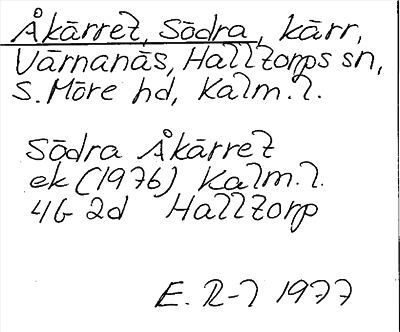 Åkärret, Södra, kärr,
Värnanäs, Halltorps sn,
S. Möre hd, Kalm. l.
Södra Åkärret
ek (1976) Kalm. l.
4G 2d Halltorp
E. R-l 1977